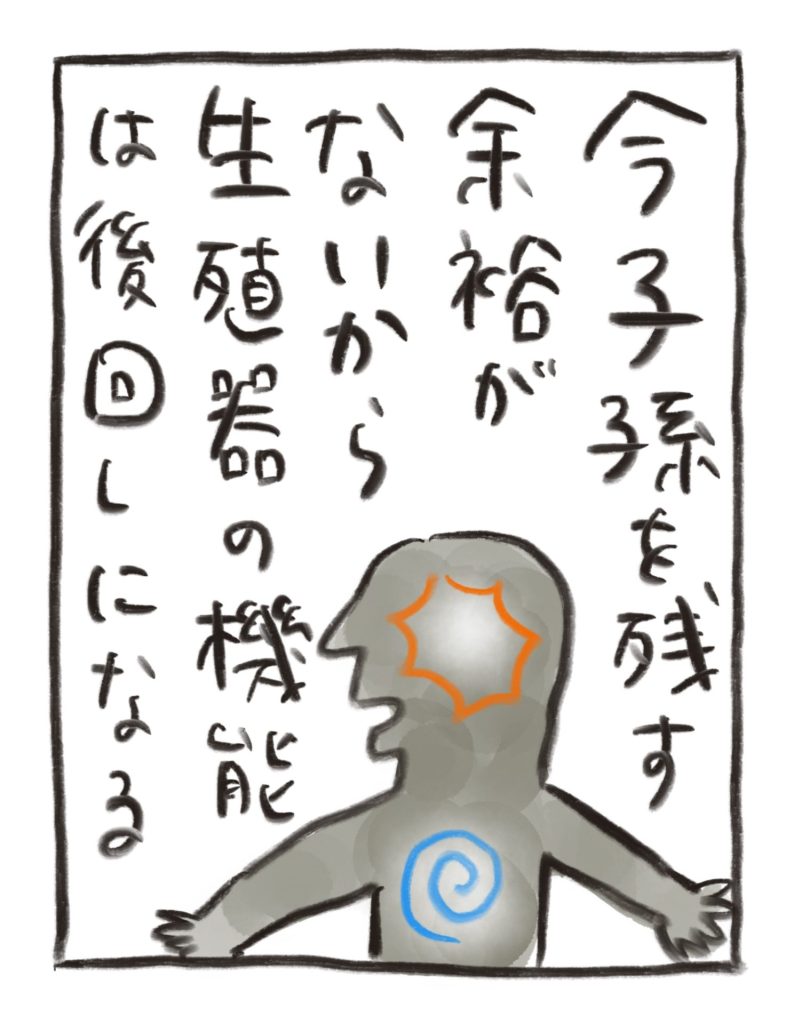 今子孫を残す
余裕が
ないから
生殖器の機能
は後回しになる